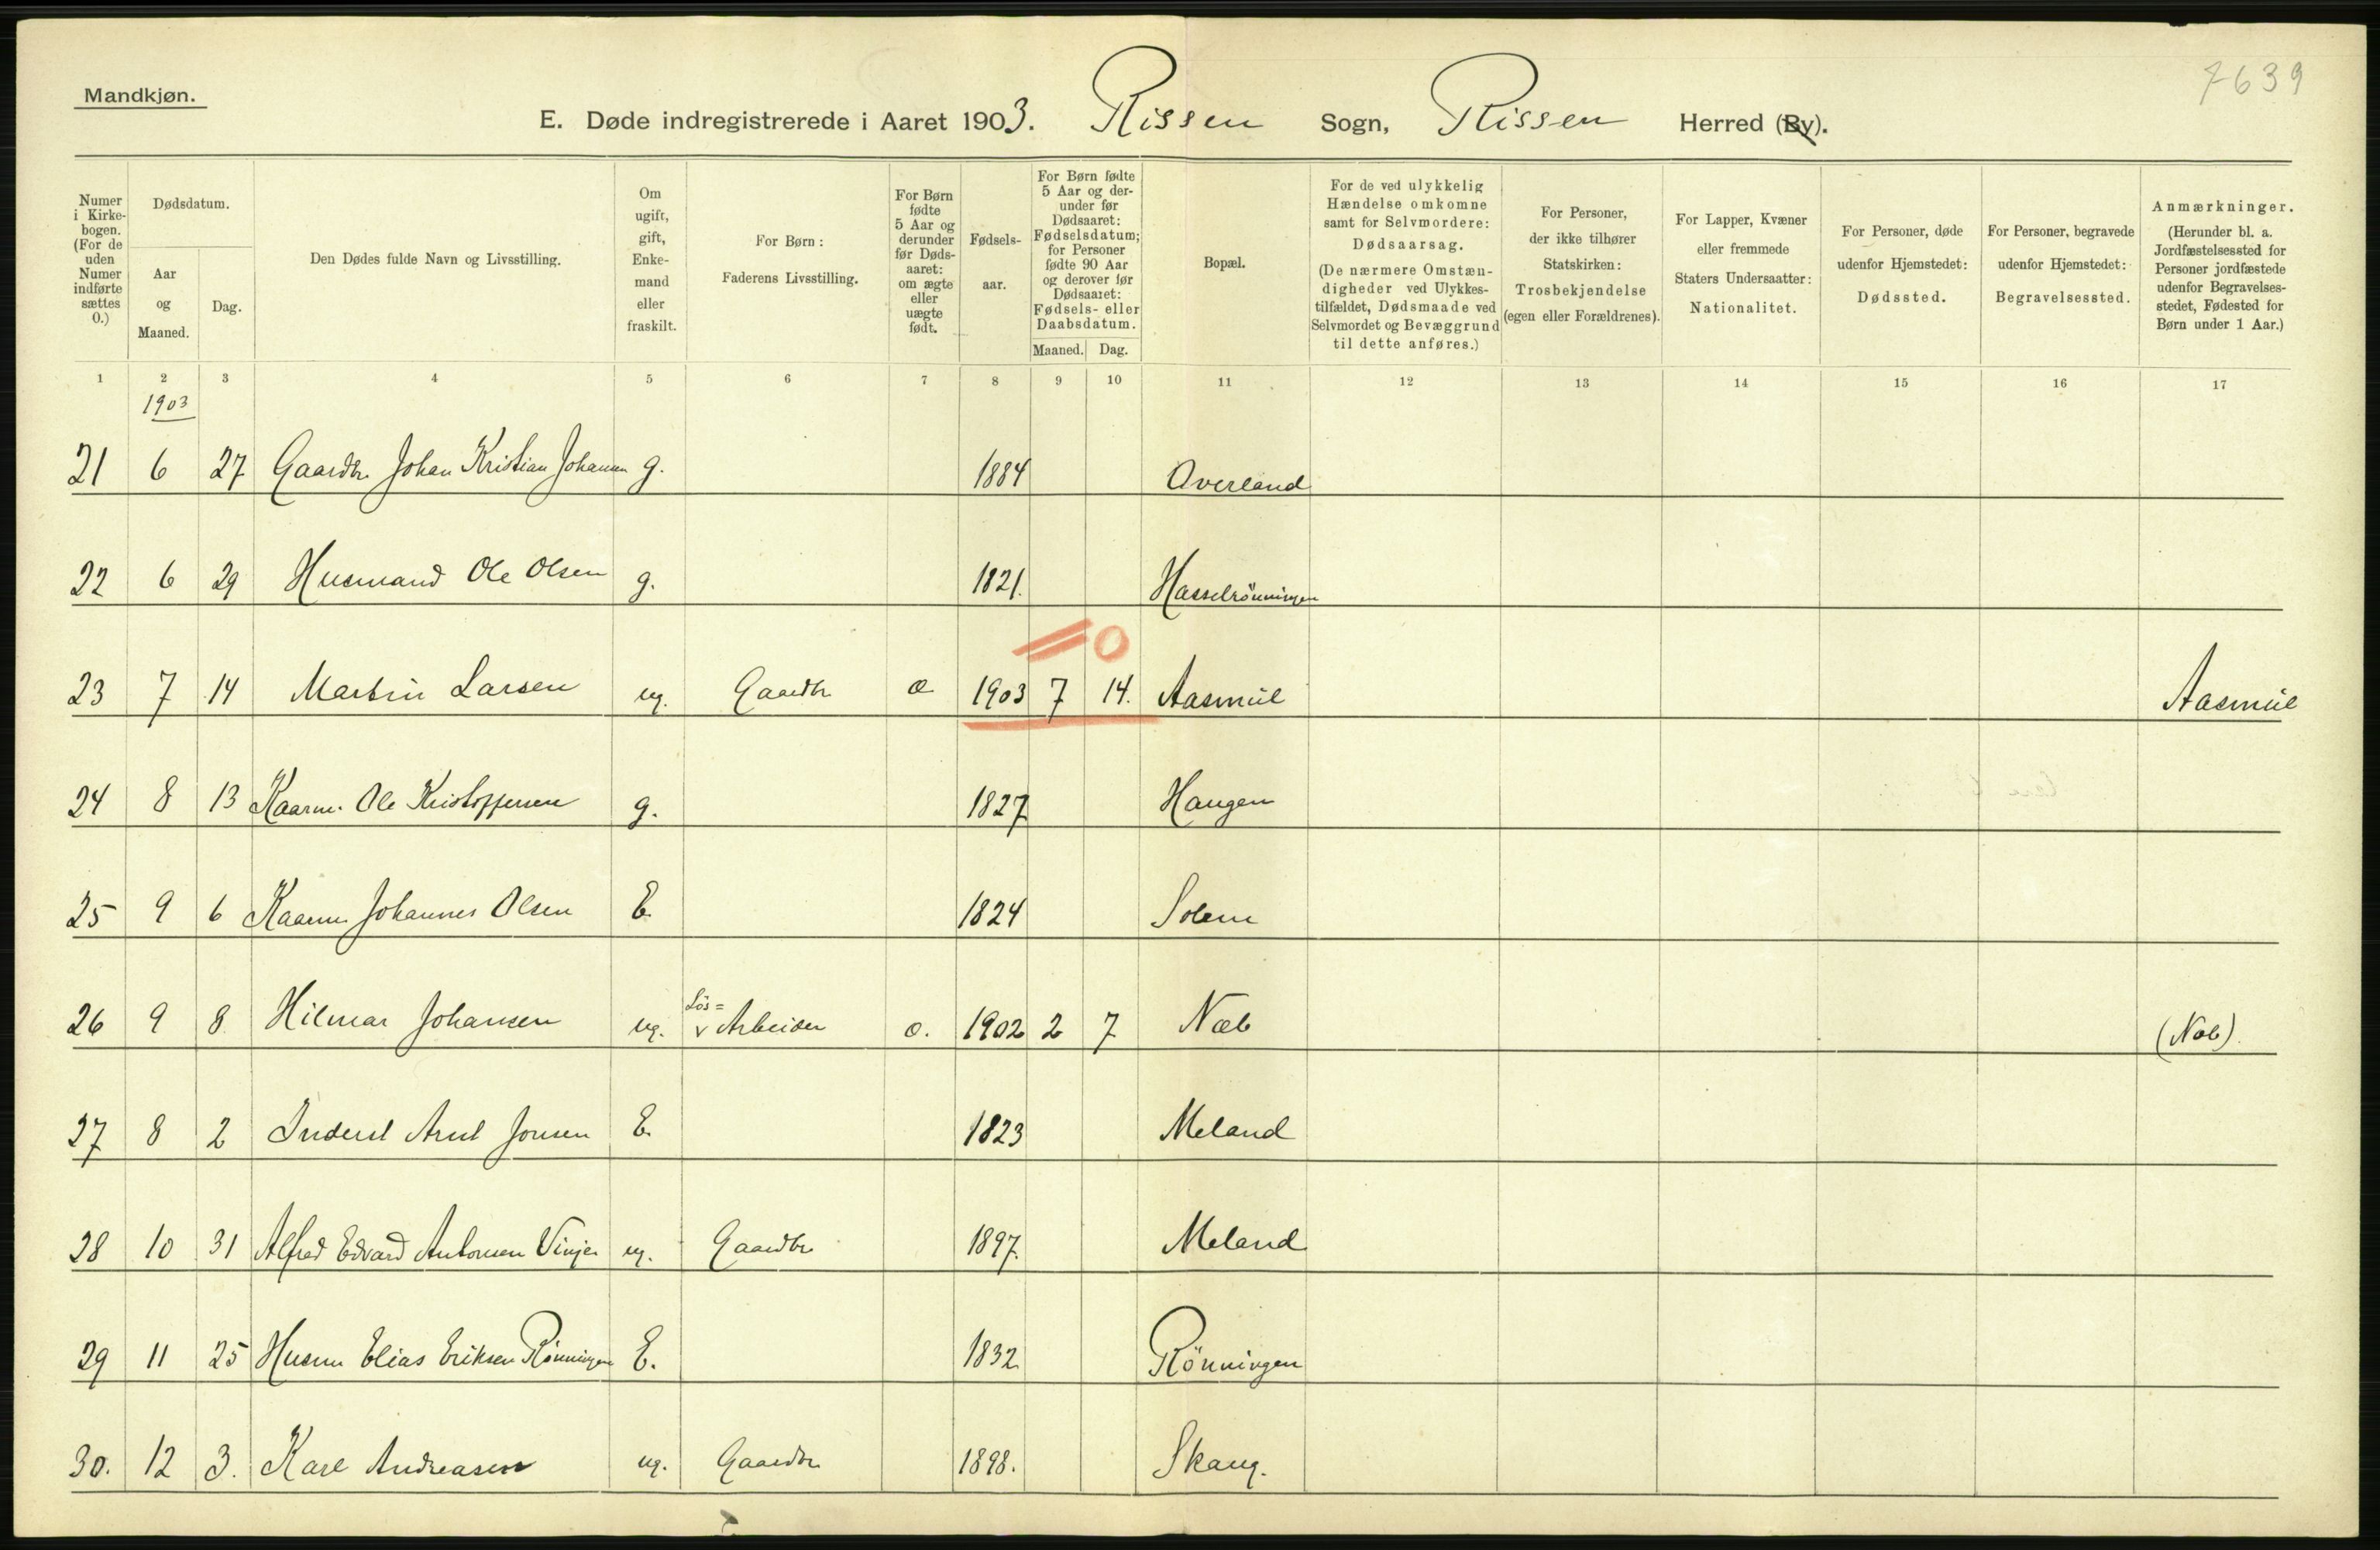 7639
Mandkjøn.
E. Døde indregistrerede i Aaret 1903. Rissen Sogn, Rissen Herred (By).
Numer i Kirkebogen. (For de uden Numer indførte sættes 0.)
Dødsdatum.
Aar og Maaned.
Dag.
Den Dødes fulde Navn og Livsstilling.
Om ugift, gift, Enkemand eller fraskilt.
For Børn: Faderens Livsstilling.
For Børn fødte 5 Aar og derunder før Dødsaaret: om ægte eller uægte født.
Fødselsaar.
For Børn fødte 5 Aar og derunder før Dødsaaret: Fødselsdatum; for Personer fødte 90 Aar og derover før Dødsaaret: Fødsels- eller Daabsdatum.
Maaned. Dag.
Bopæl.
For de ved ulykkelig Hændelse omkomne samt for Selvmordere: Dødsaarsag. (De nærmere Omstændigheder ved Ulykkestilfældet, Dødsmaade ved Selvmordet og Bevæggrund til dette anføres.)
For Personer, der ikke tilhører Statskirken: Trosbekjendelse (egen eller Forældrenes).
For Lapper, Kvæner eller fremmede Staters Undersaatter: Nationalitet.
For Personer, døde udenfor Hjemstedet: Dødssted.
For Personer, begravede udenfor Hjemstedet: Begravelsessted.
Anmærkninger. (Herunder bl. a. Jordfæstelsessted for Personer jordfæstede udenfor Begravelsesstedet, Fødested for Børn under 1 Aar.)
1 2 3 4 5 6 7 8 9 10 11 12 13 14 15 16 17
1903
21 6 27 Gaardbr. Johan Kristian Johansen g. 1884 Overland
22 6 29 Husmand Ole Olsen g. 1821. Hasselrönningen
0
23 7 14 Martin Larsen ug. Gaardbr 1903 7 14. Aasmul Aasmul
24 8 13 Kaarm. Ole Kristoffersen g. 1827 Haugen
25 9 6 Kaarm. Johannes Olsen E. 1824 Solem
Lös=
26 9 8 Hilmar Johansen ug. v Arbeider 1902 2 7
27 8 2 Inderst Arnt Jonsen E. 1823 Meland
28 10 31 Alfred Edvard Antonsen Vinje ug. Gaardbr 1897. Meland
29 11 25 Husm Elias Eriksen Rönningen E. 1832 Rönningen
30. 12 3. Karl Andreasen ug. Gaardbr 1898. Skaug.